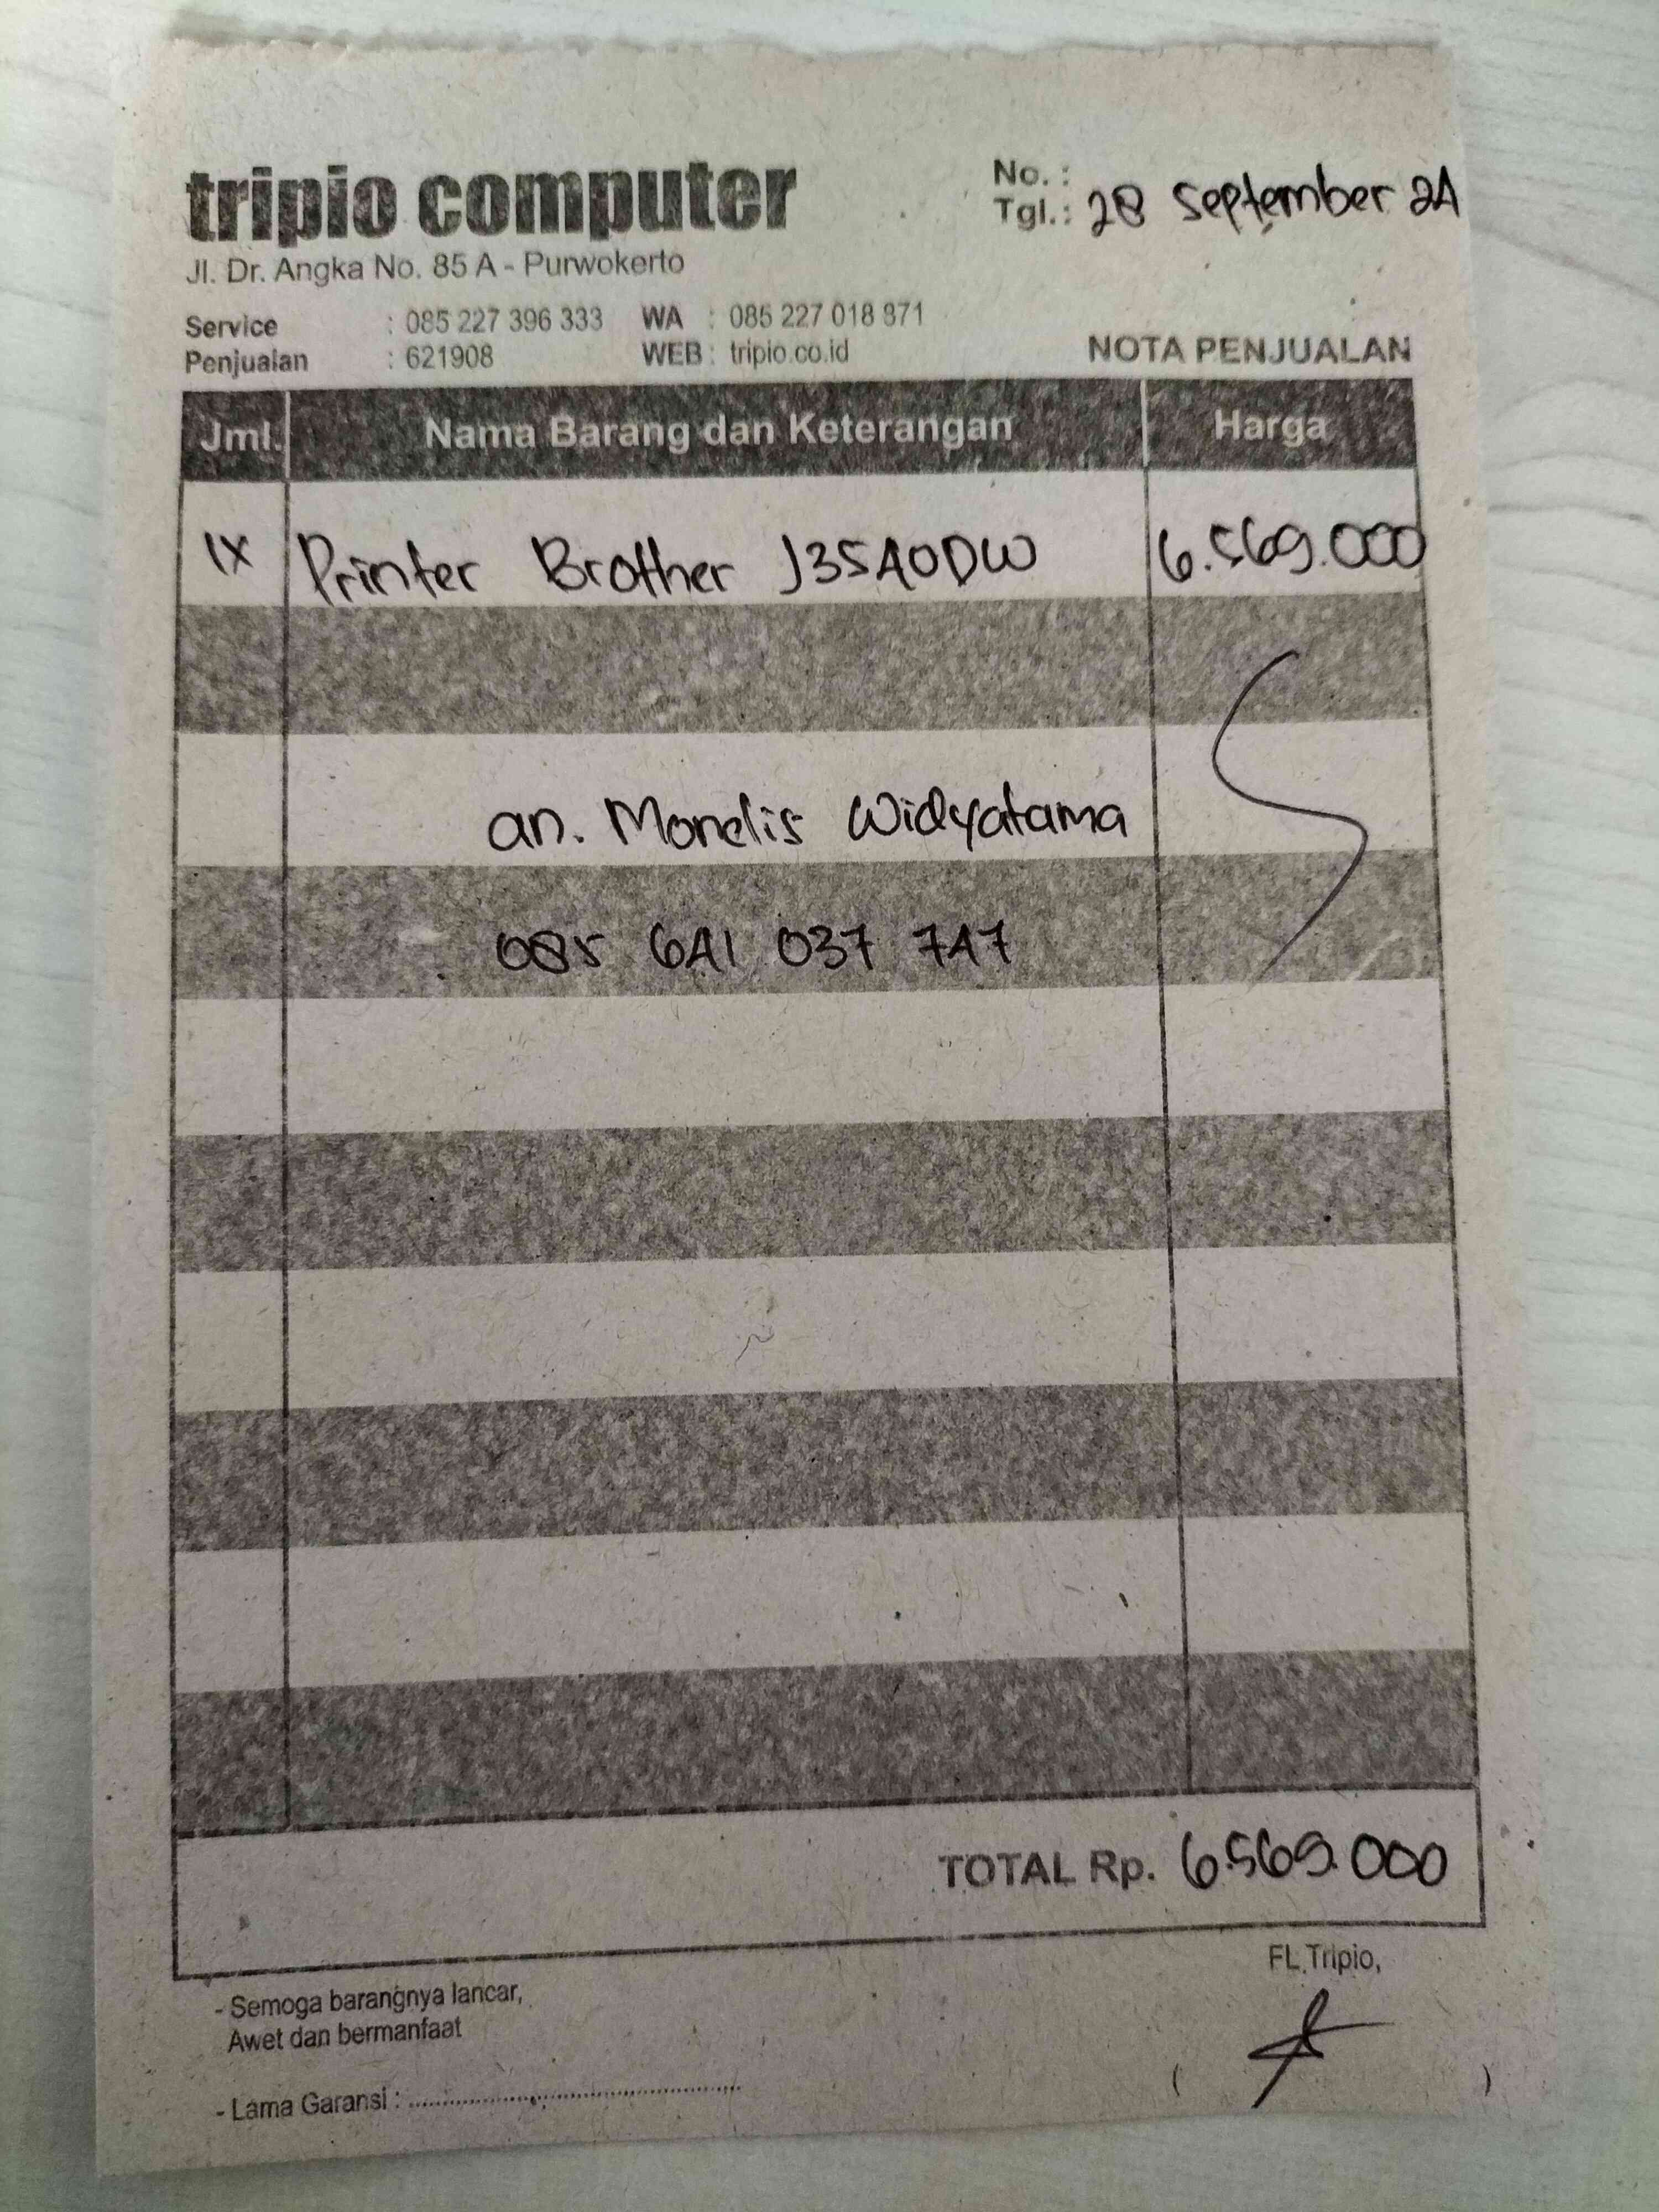 tripio computer
Jl. Dr. Angka No. 85 A - Purwokerto
No. :
Tgl.: 28 September 24
Service : 085 227 396 333 WA : 085 227 018 871
Penjualan : 621908 WEB : tripio.co.id
NOTA PENJUALAN
Jml. Nama Barang dan Keterangan Harga
1X Printer Brother J3540DW 6.569.000
an. Monelis Widyatama
085 641 037 747
TOTAL Rp. 6.569.000
FL Tripio,
- Semoga barangnya lancar,
Awet dan bermanfaat
- Lama Garansi : ........................................
( )